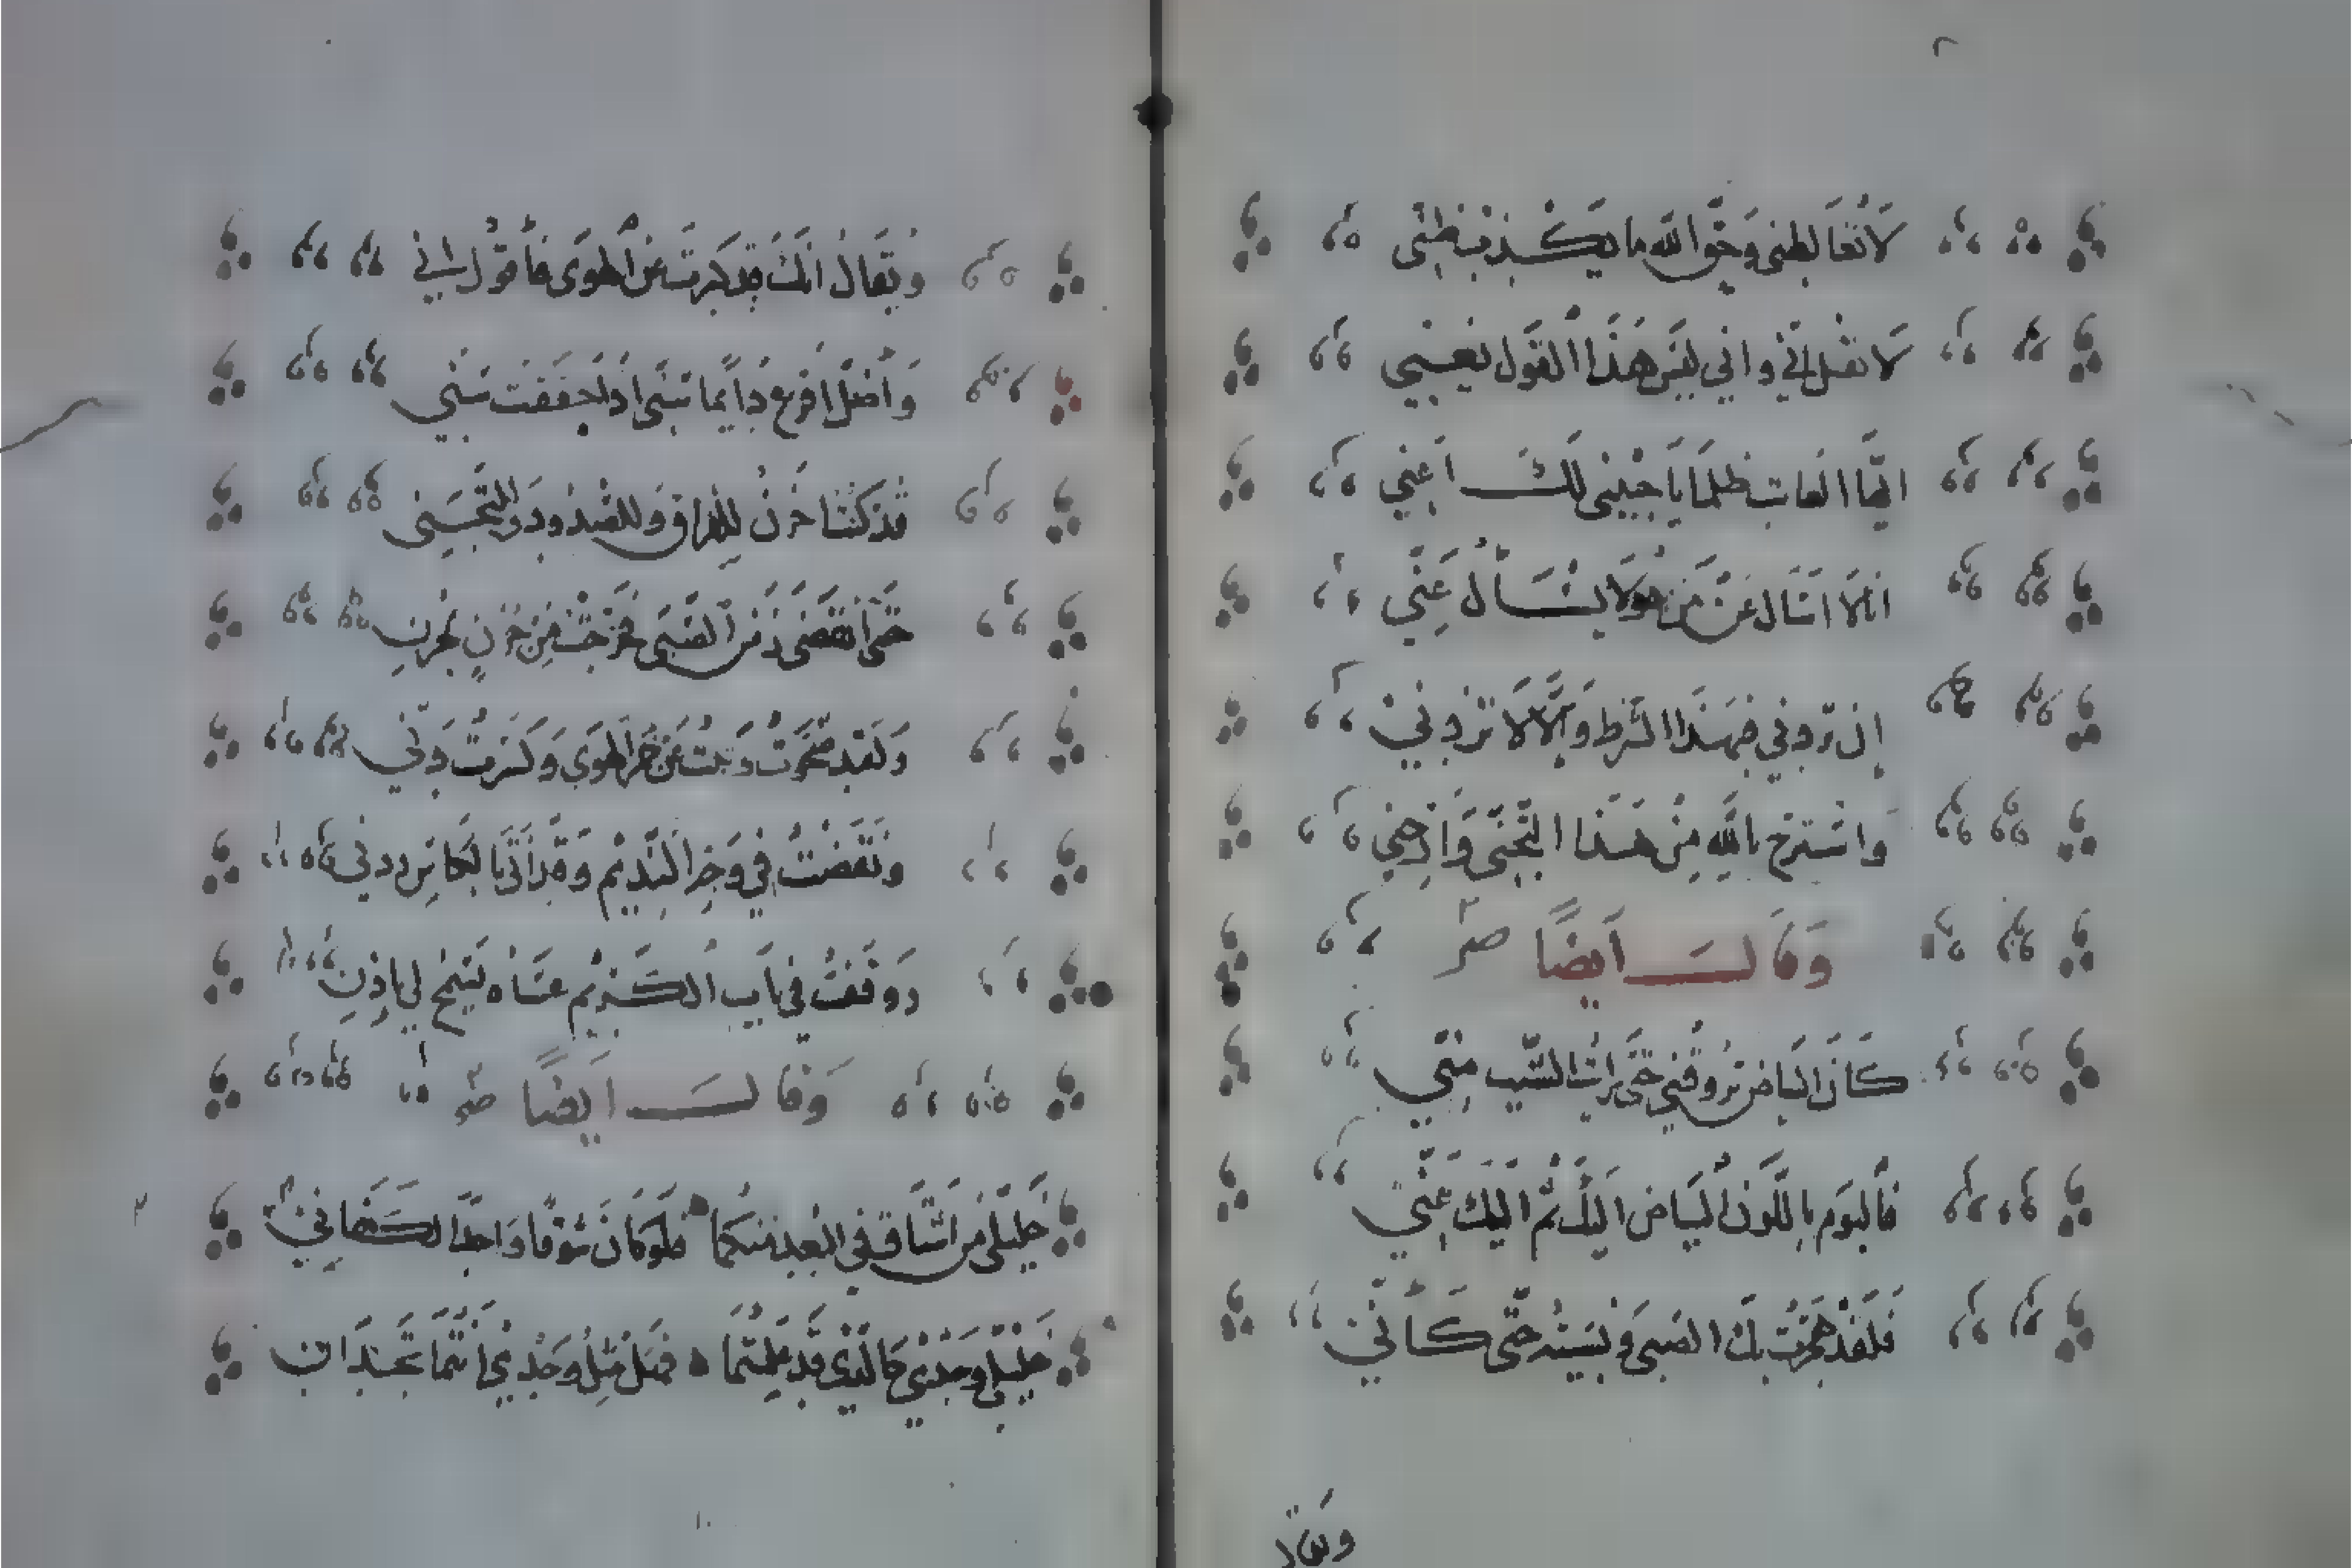 ٢
لَا تُغَالِطني وَحَقّ الله ما يَكْذِبُ ظَنّي
لَا تقُل إنّي وإني ليسَ هَذَا القَول يعجبني
ايّها العاتب ظلمًا يَا حَبيبي لَكَ اعني
انا لا اسَال عَنْ مَن هُوَ لا يَسْأل عَنّي
إن تردني فبهَذَا الشرط وَإلّا لا تردني
وَاسْترح باللهِ مِنْ هَذا التّجَنّي وَارحني
وَقَالَ ايضًا
كَانَ البياض يَروقني حَتّى رايتُ الشّيب منّي
فَاليَوم يا للّون البَيَاض اليكَ ثم اليكَ عَنّي
فَلَقَد هَجَرتُ بك الصبَى وَنسيتهُ حَتّى كَأنّي
وَيقال
وَيقَالُ انكَ قد كبرتَ عَن الهوَى فأقول إني
وَأضل اقرع دَايمًا سنّي اذا خفقت سنّي
قد كنتُ احزنُ للفراقِ وَللصّدُودِ وَللتّجَنّي
حَتّى انقَضَى زَمَن الصّبَى فخرجتُ مِن حزنٍ لحزنِ
وَلَقد صَحَوتُ وَتبتُ عَن خمر الهَوَى وَكسَرتُ دَنّي
وَنَقَضتُ في وَجهِ النّديمِ وَقد أتَانا بالكَاس ردني
وَوقفتُ في بَابِ الكَريمِ عسَاه يَسمَح لي باذنِ
وَقَالَ ايضًا
٣
خَليلَيّ مَن اشتَاق في البُعد منكمَا فلو كَانَ شوقًا وَاحدًا لكَفَاني
خَليلَيّ وَجدي كالذي قد علمتُمَا فهَل مثلُ وَجدي انتمَا تجدَان